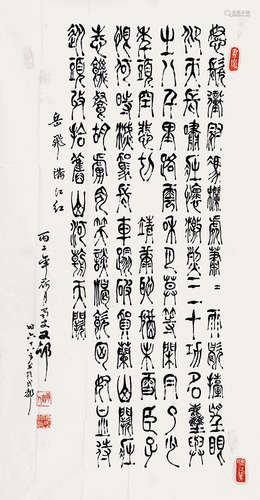 怒髮衝冠憑欄處瀟〻雨歇擡望眼
仰天長嘯壯懷激烈三十功名塵與
土八千里路雲和月莫等閒白了少
年頭空悲切靖康恥猶未雪臣子
恨何時滅駕長車踏破賀蘭山闕壯
志飢餐胡虜肉笑談渴飲匈奴血待
從頭收拾舊山河朝天闕
岳飛滿江红
丙子年月